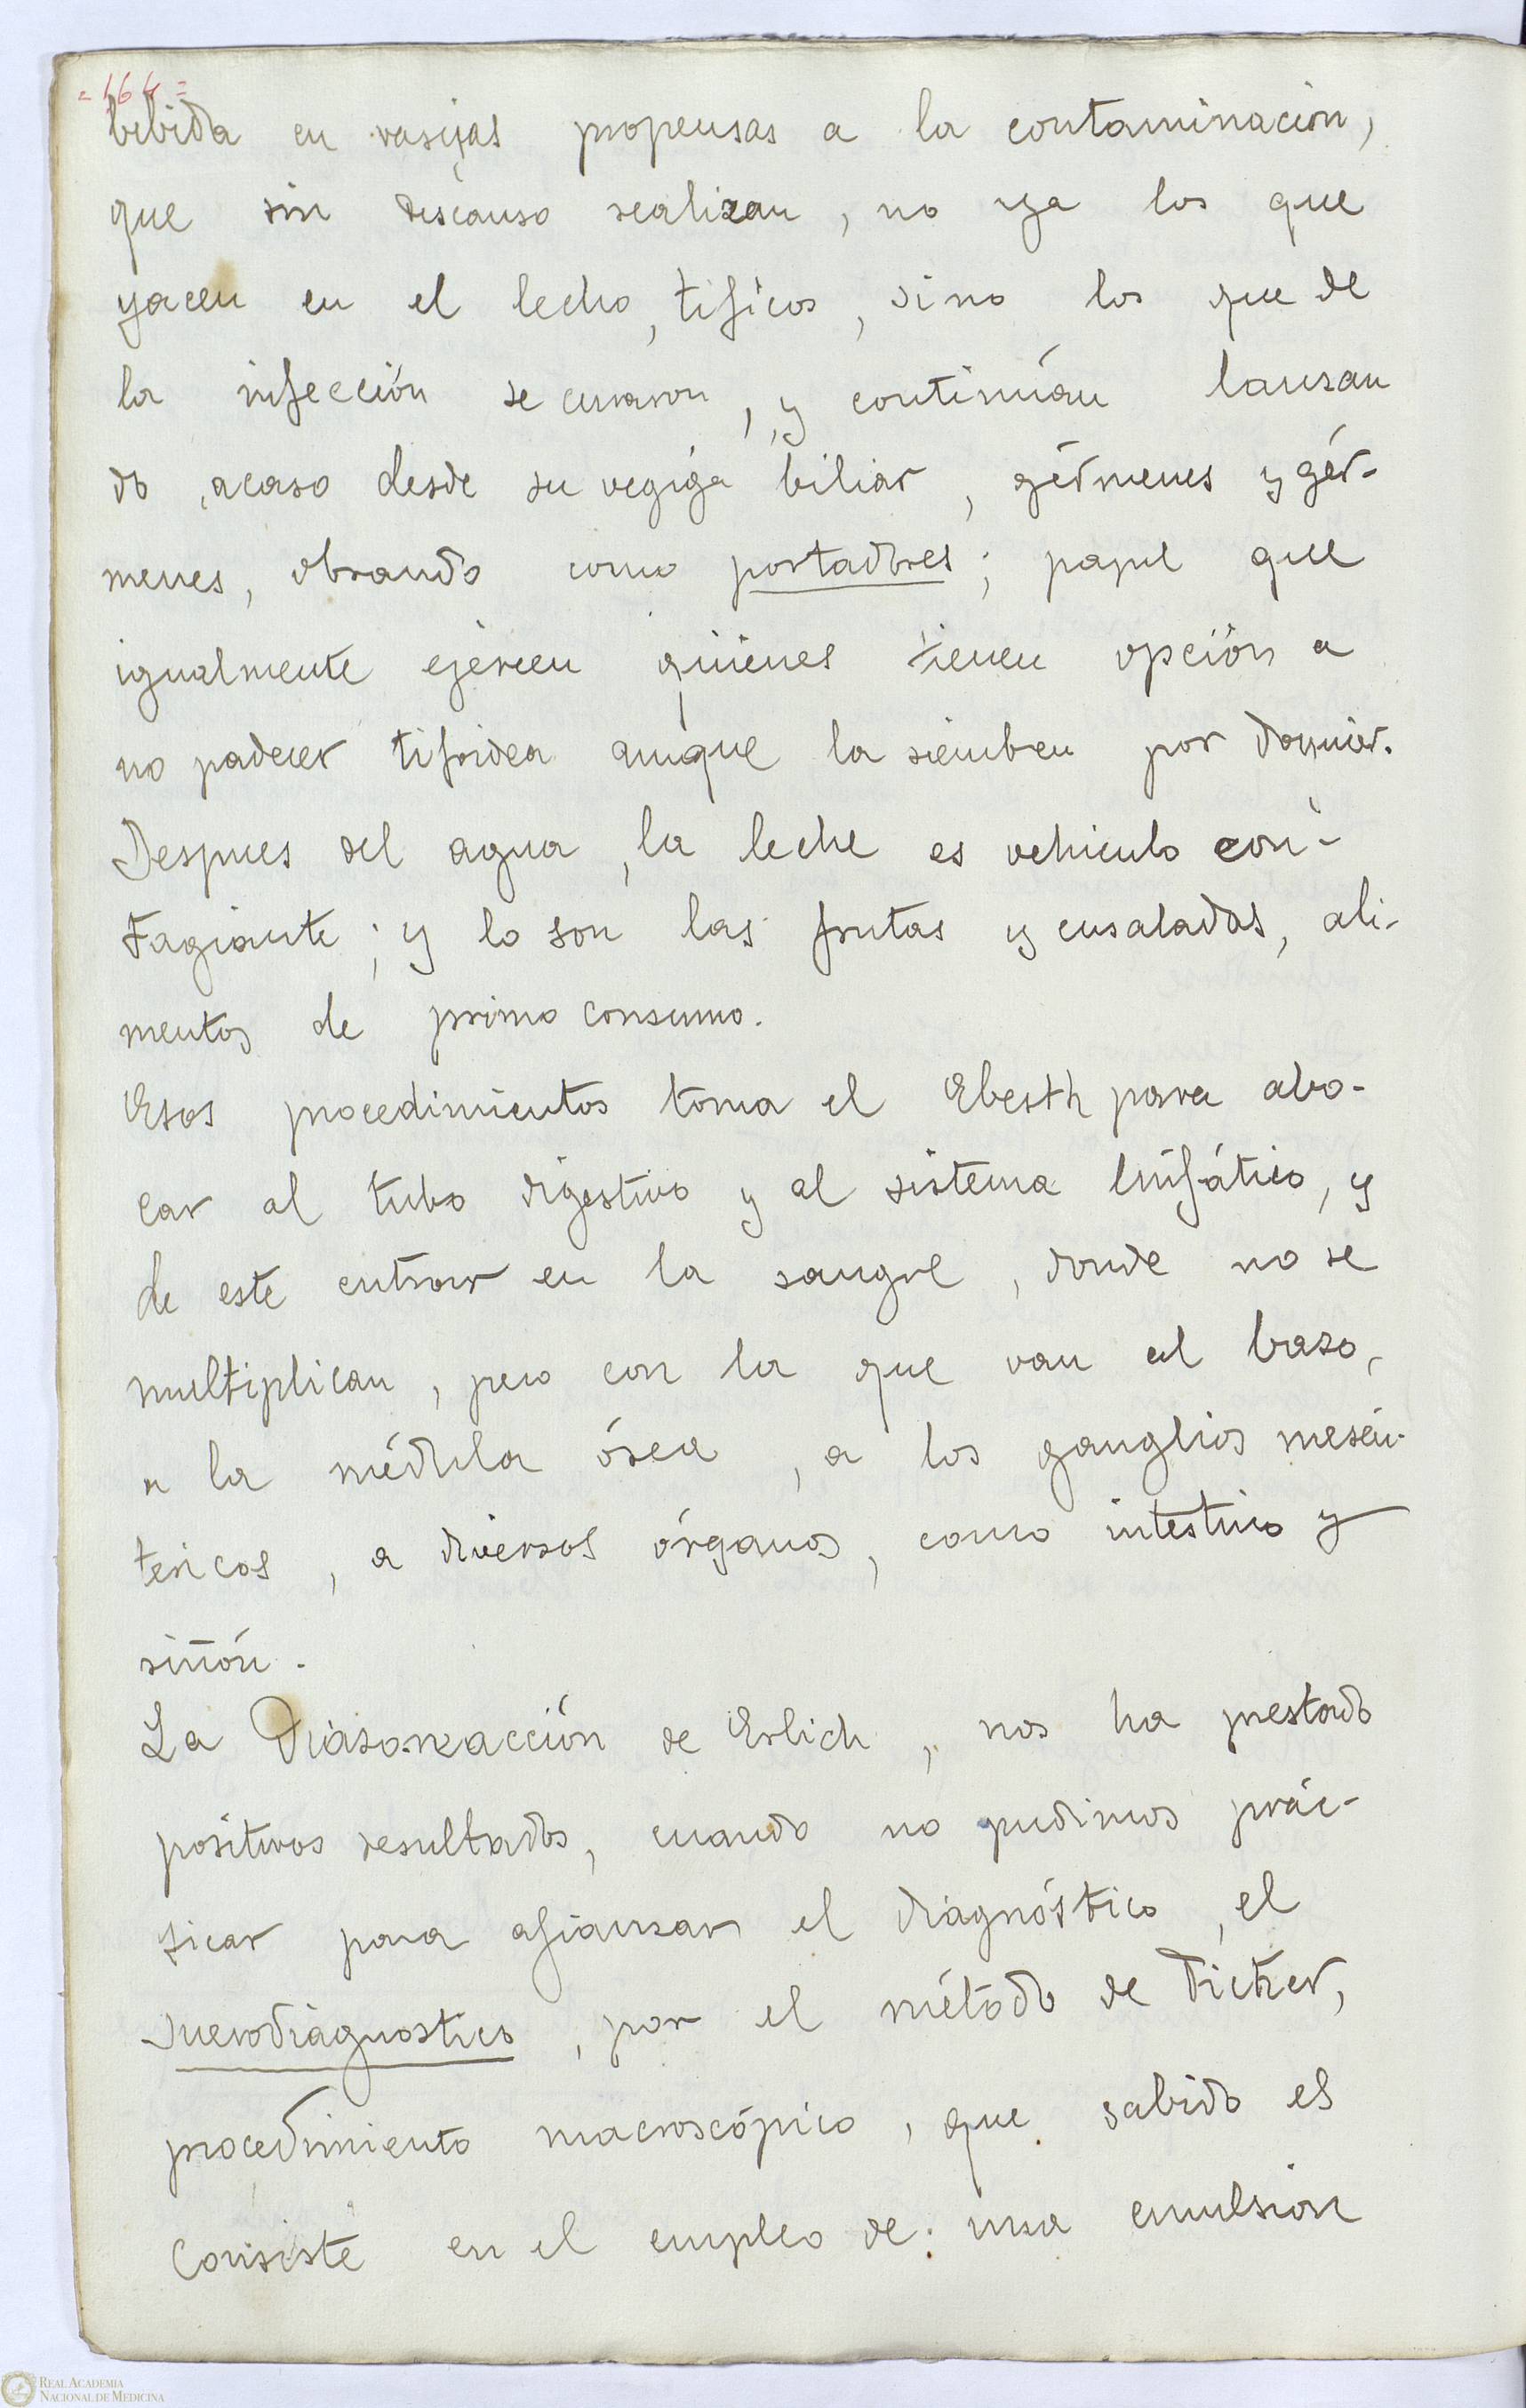 =164=
bebida en vasijas propensas a la contaminación,
que sin descanso realizan, no ya los que
yacen en el lecho, tíficos, sino los que de
la infección se curaron, y continúan lanzan
do, acaso desde su vegiga biliar, gérmenes y gér-
menes, obrando como portadores; papel que
igualmente ejercen quienes tienen opción a
no padecer tifoidea aunque la siembren por doquier.
Despues del agua, la leche es vehiculo con-
tagiante; y lo son las frutas y ensaladas, ali-
mentos de primo consumo.
Esos procedimientos toma el Eberth para abo-
car al tubo digestivo y al sistema linfático, y
de este entrar en la sangre, donde no se
multiplican, pero con la que van al bazo,
a la médula ósea, a los ganglios mesén-
tericos, a diversos órganos, como intestino y
riñón.
La Diazoreacción de Erlich, nos ha prestado
positivos resultados, cuando no pudimos prác-
ticar para afianzar el diagnóstico, el
suerodiagnostico, por el método de Ficker,
procedimiento macroscópico, que sabido es
consiste en el empleo de una emulsion
REAL ACADEMIA
NACIONAL DE MEDICINA